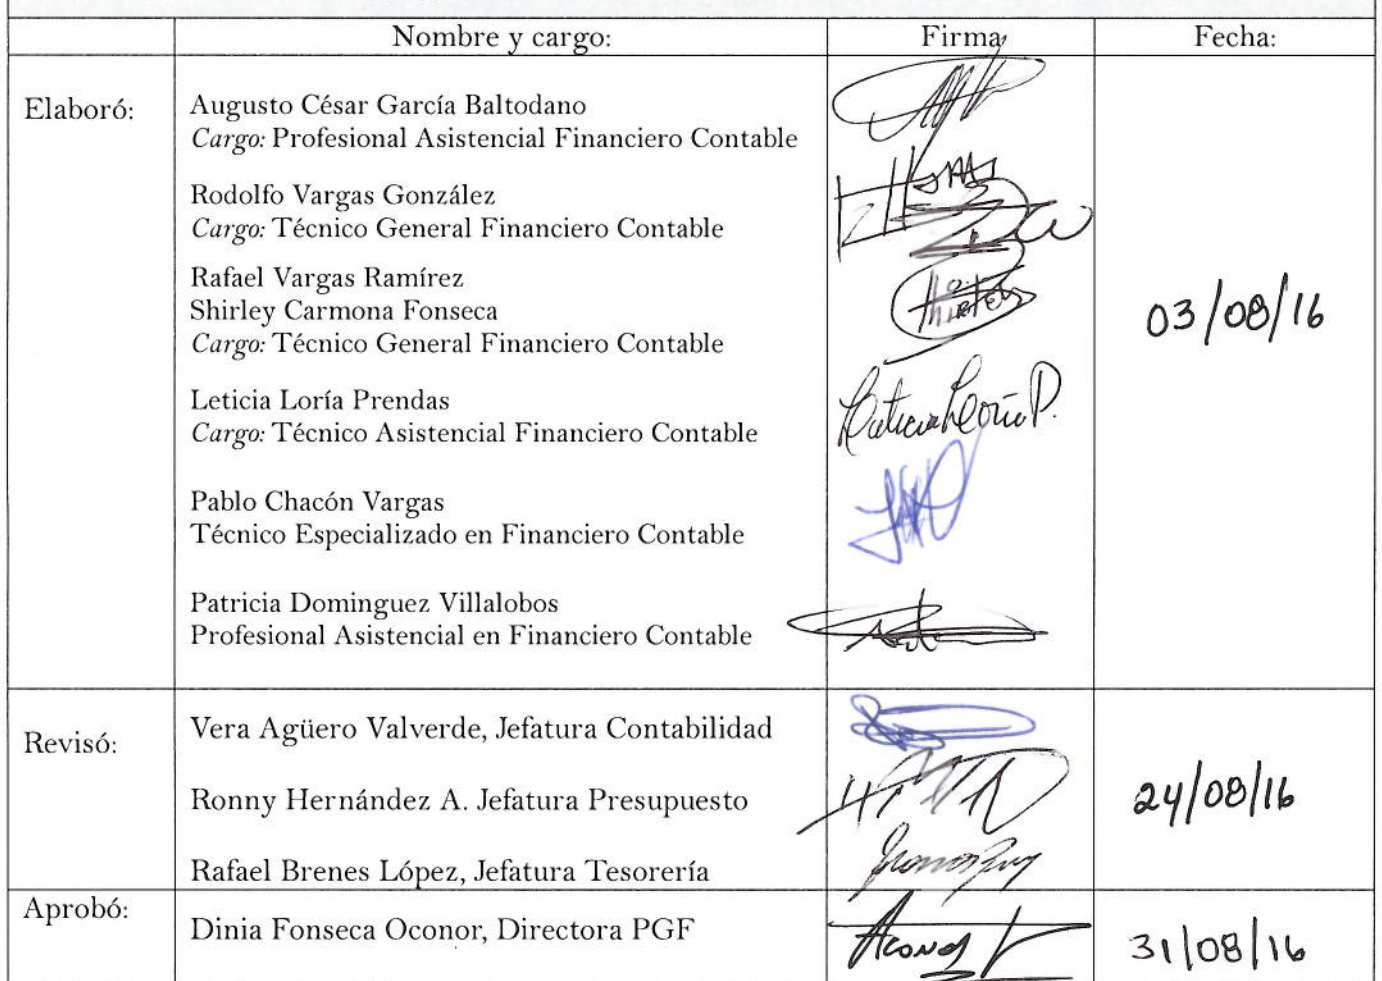 Nombre y cargo: Firma Fecha:
Elaboró:
Augusto César García Baltodano
Cargo: Profesional Asistencial Financiero Contable
Rodolfo Vargas González
Cargo: Técnico General Financiero Contable
Rafael Vargas Ramírez
Shirley Carmona Fonseca
Cargo: Técnico General Financiero Contable
Leticia Loría Prendas
Cargo: Técnico Asistencial Financiero Contable
Leticia Loría P.
Pablo Chacón Vargas
Técnico Especializado en Financiero Contable
Patricia Dominguez Villalobos
Profesional Asistencial en Financiero Contable
03/08/16
Revisó:
Vera Agüero Valverde, Jefatura Contabilidad
Ronny Hernández A. Jefatura Presupuesto
Rafael Brenes López, Jefatura Tesorería
24/08/16
Aprobó:
Dinia Fonseca Oconor, Directora PGF
31/08/16